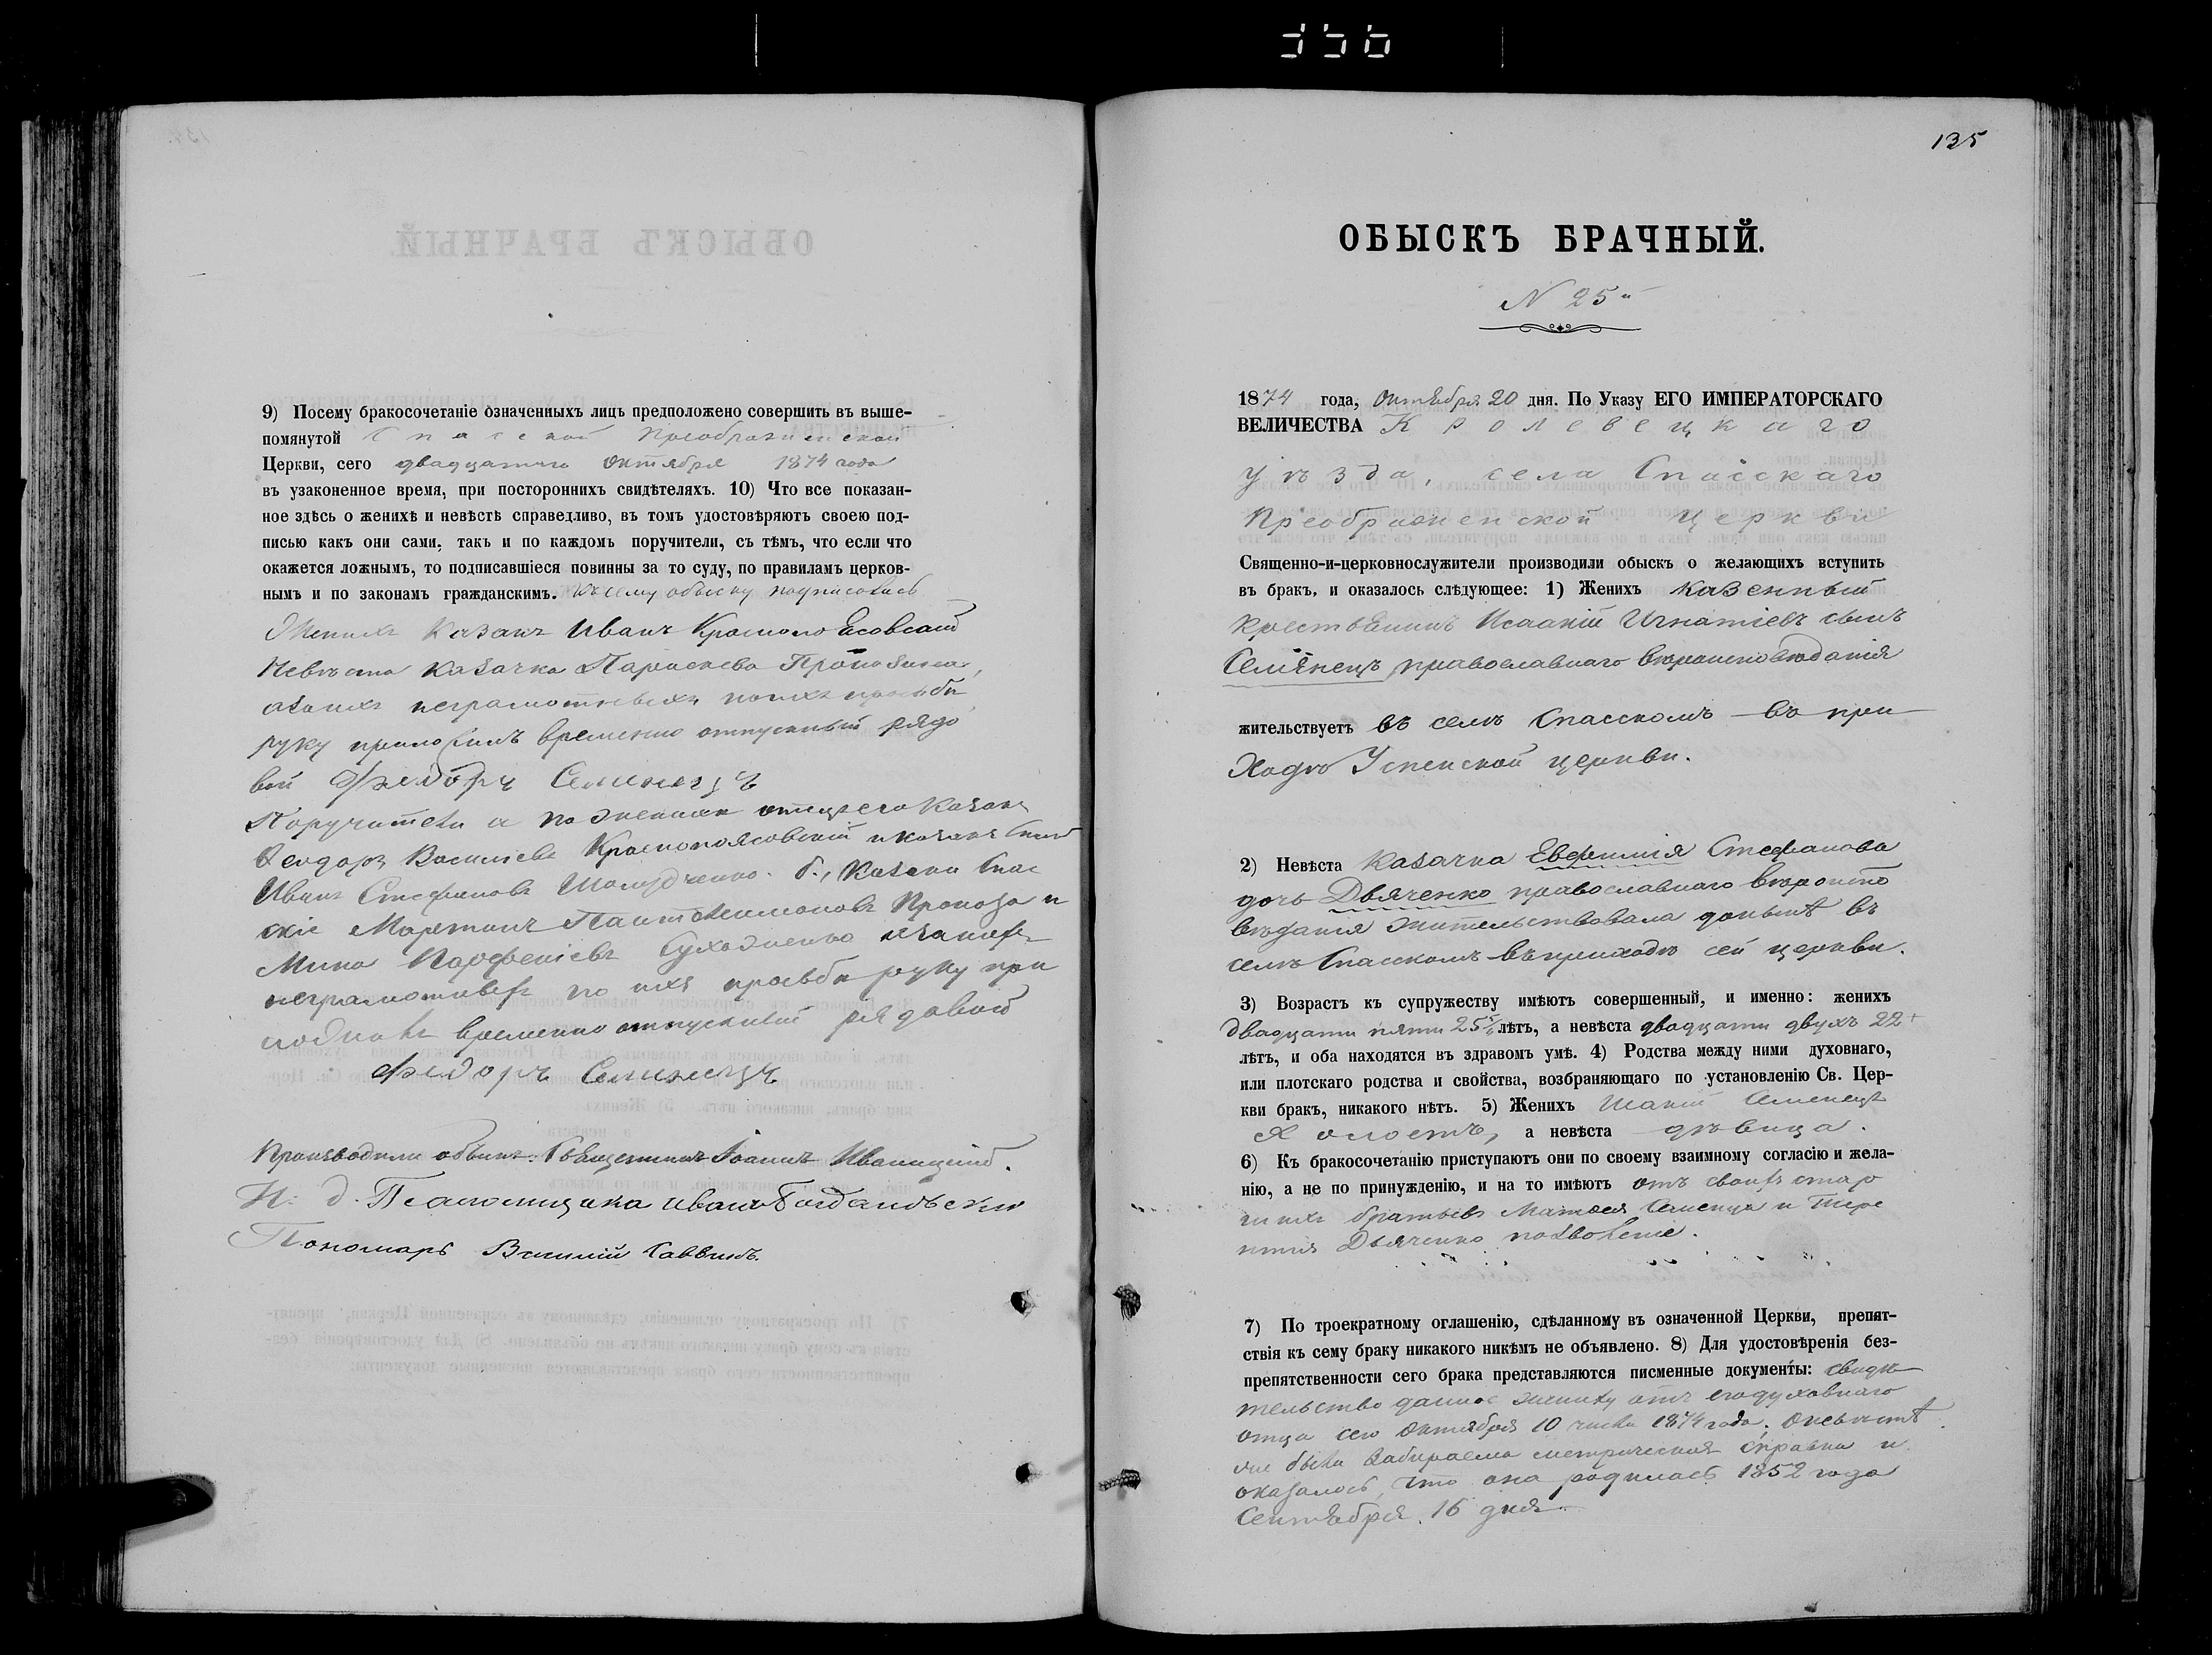 9) Посему бракосочетаніе означенныхъ лицъ предположено совершить въ выше-
помянутой Спасской Преображенской
Церкви, сего двадцатаго Октября 1874 года
въ узаконенное время, при постороннихъ свидѣтеляхъ. 10) Что все показан-
ное здѣсь о женихѣ и невѣстѣ справедливо, въ томъ удостовѣряютъ своею под-
писью какъ они сами, такъ и по каждомъ поручители, съ тѣмъ, что если что
окажется ложнымъ, то подписавшіеся повинны за то суду, по правиламъ церков-
нымъ и по законамъ гражданскимъ. Къ сему обыску подписались
Женихъ Казакъ Иванъ Краснопоясовскій
Невѣста казачка Параскева
неграмотныхъ по ихъ просьбѣ
руку приложилъ временно отпускный рядо
вой Фіодоръ Семинецъ
Поручители а по женихѣ отецъ его казакъ
Ѳеодоръ Васильевъ Краснопоясовскій и казакъ
Иванъ Стефановъ б., казаки Спас
скіе Мартинъ Пантелимоновъ Пропоза и
Мина Парфеніевъ Суходченко
неграмотныхъ по ихъ просьбѣ руку при
временно отпускный рядовой
Фіодоръ Семинецъ
Производили обыскъ: Священникъ Іоаннъ Иваницкій.
И: д. Псаломщика Иванъ Богдановскій
Пономарь Василій Саввичъ.
135
ОБЫСКЪ БРАЧНЫЙ.
N 25й
1874 года, Октября 20 дня. По Указу ЕГО ИМПЕРАТОРСКАГО
ВЕЛИЧЕСТВА Кролевецкаго
уѣзда, села Спасскаго
Преображенской Церкви
Священно-и-церковнослужители производили обыскъ о желающихъ вступить
въ бракъ, и оказалось слѣдующее: 1) Женихъ казенный
крестьянинъ Исаакій Игнатіевъ сынъ
Семѣнецъ православнаго вѣроисповѣданія
жительствуетъ въ селѣ Спасскомъ въ при
ходѣ Успенской церкви.
2) Невѣста казачка Евфимія Стефанова
дочь Дьяченко православнаго вѣроиспо
вѣданія жительствовала донынѣ въ
селѣ Спасскомъ въ приходѣ сей церкви.
3) Возрастъ къ супружеству имѣютъ совершенный, и именно: женихъ
двадцати пяти 25 лѣтъ, а невѣста двадцати двухъ 22
лѣтъ, и оба находятся въ здравомъ умѣ. 4) Родства между ними духовнаго,
или плотскаго родства и свойства, возбраняющаго по установленію Св. Цер-
кви бракъ, никакого нѣтъ. 5) Женихъ Исакій Семенецъ
Холостъ, а невѣста дѣвица.
6) Къ бракосочетанію приступаютъ они по своему взаимному согласію и жела-
нію, а не по принужденію, и на то имѣютъ отъ своихъ стар
шихъ братьевъ Матѳея Семенца и Тере
нтія Дьяченко позволеніе.
7) По троекратному оглашенію, сдѣланному въ означенной Церкви, препят-
ствія къ сему браку никакого никѣмъ не объявлено. 8) Для удостовѣренія без-
препятственности сего брака представляются писменные документы: свидѣ
тельство данное жениху отъ его духовнаго
отца сего Октября 10 числа 1874 года; о невѣстѣ
же была забираема метрическая справка и
оказалось, что она родилась 1852 года
Сентября 16 дня.